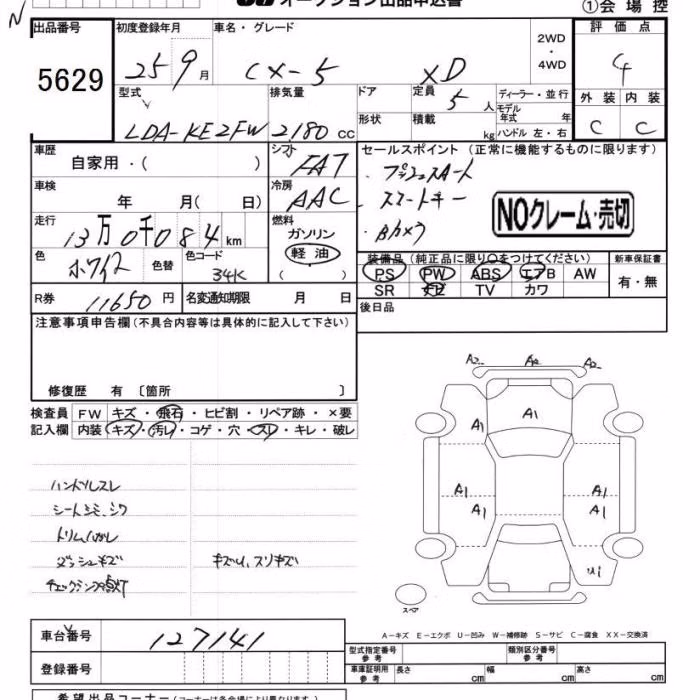 N
オークション出品申込書
①会場控
出品番号 初度登録年月 車名・グレード 2WD・4WD 評価点
5629 25 9月 CX-5 XD 4
型式 排気量 ドア 定員 5人 ディーラー・並行 外装 内装
LDA-KE2FW 2180cc 形状 積載 kg モデル年式 年 ハンドル 左・右 C C
車歴 自家用・( ) シフト FAT セールスポイント(正常に機能するものに限ります)
車検 年 月( 日) 冷房 AAC プッシュスタート
スマートキー
Bカメラ
NOクレーム・売切
走行 13万0千084km 燃料 ガソリン 軽油 ( )
色 ホワイト 色替 色コード 34K
装備品(純正品に限り○をつけてください) 新車保証書
PS PW ABS エアB AW 有・無
SR ナビ TV カワ
R券 11650円 名変通知期限 月 日 後日品
注意事項申告欄(不具合内容等は具体的に記入して下さい)
修復歴 有 〔箇所 〕
検査員 FW キズ・飛石・ヒビ割・リペア跡・×要
記入欄 内装 キズ・汚レ・コゲ・穴・スレ・キレ・破レ
A2 A2 A2
A1 A1
A1 A1
A1 A1
U1
スペア
ハンドルスレ
シートシミ、シワ
トリムハガレ
ダッシュキズ キズU、スリキズ
チェックランプ点灯
A-キズ E-エクボ U-凹み W-補修跡 S-サビ C-腐食 XX-交換済
車台番号 127141
型式指定番号 参考 類別区分番号 参考
登録番号 車庫証明用 参考 長さ cm 幅 cm 高さ cm
希望出品コーナー(コーナーは各会場により異なります)